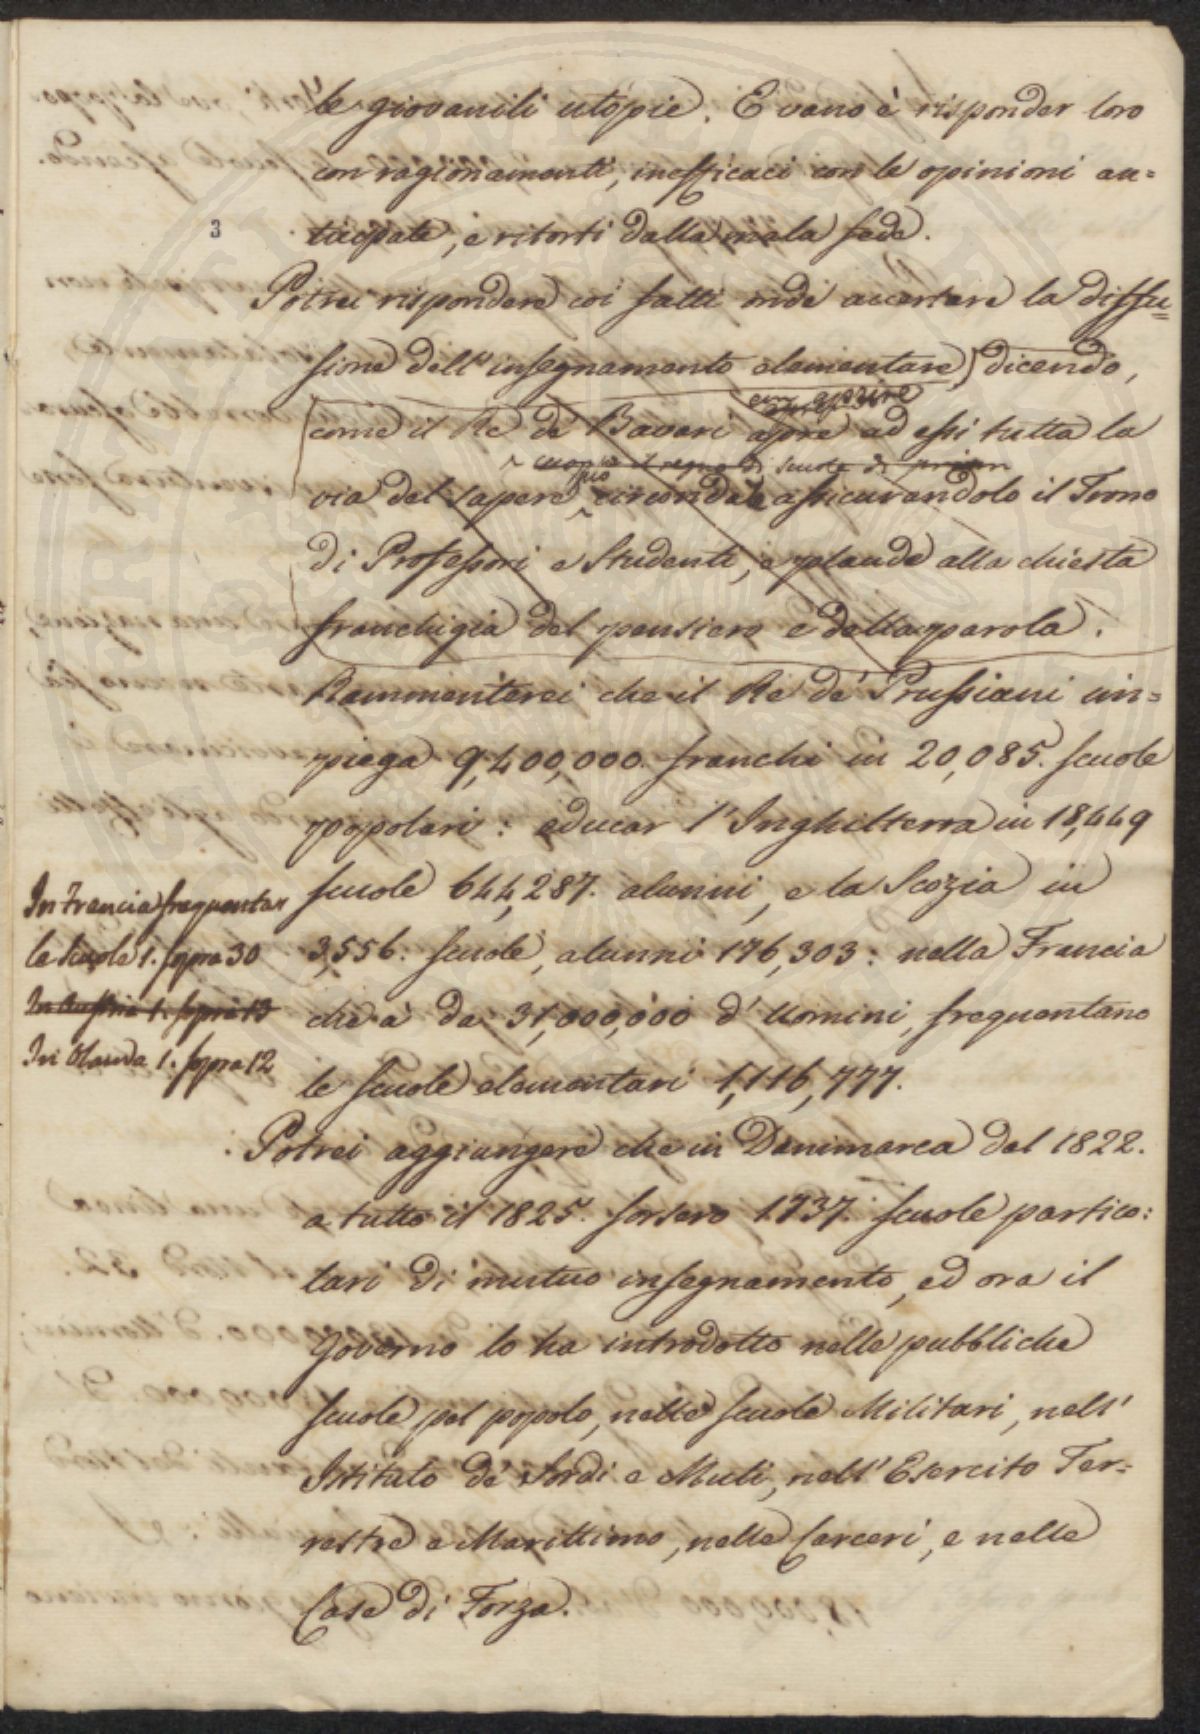 le giovanili utopie. E vano è risponder loro
con ragionamenti, inefficaci con le opinioni an=
3
ticipate, e ritorti dalla mala fede.
Potrei rispondere coi fatti onde accertare la diffu=
sione dell'insegnamento elementare, dicendo,
aprire
come il Re de' Bavari apre ad essi tutta la
il regno di scuole di
suo
via del sapere circonda assicurandolo il Trono
di Professori e Studenti, e plaude alla chiesta
franchigia del pensiero e della parola.
Rammenterei che il Re de' Prussiani im=
piega 9,400,000. franchi in 20,085. scuole
popolari: educar l'Inghilterra in 18,449
scuole 644,287. alunni, e la Scozia in
3,556. scuole, alunni 176,303: nella Francia
che à da 31,000,000 d'Uomini, frequentano
le scuole elementari 1,116,777.
In Francia frequentan
le Scuole 1. sopra 30
In Austria 1. sopra 13
In Olanda 1. sopra 12
Potrei aggiungere che in Danimarca dal 1822.
a tutto il 1825. sorsero 1737. scuole partico:
lari di mutuo insegnamento, ed ora il
Governo lo ha introdotto nelle pubbliche
scuole pel popolo, nelle scuole Militari, nell'
Istituto de' Sordi e Muti, nell'Esercito Ter=
restre e Marittimo, nelle Carceri, e nelle
Case di Forza.